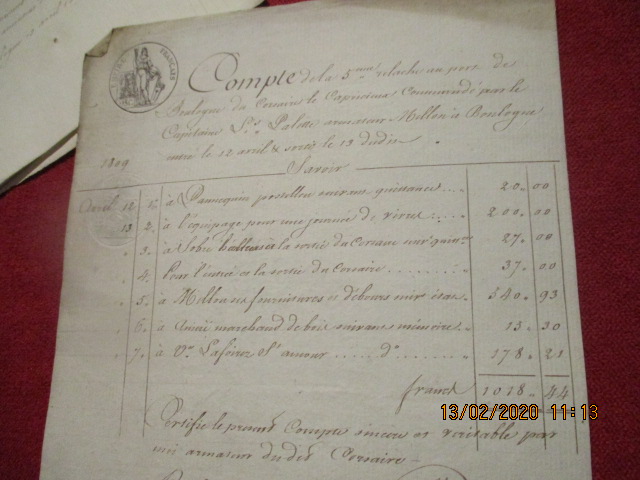 FRANÇAIS
Compte de la 5me relache au port de
Boulogne du Corsaire le Capricieux Commandé par le
Capitaine Palette armateur Mellon à Boulogne
entré le 12 avril & sorti le 13 dudit
1809
Savoir
Avril 12 1. à Dannequin postillon suivant quittance 20. 00
13 2. à l'équipage pour une journée de vivres 200. 00
3. à la sortie du Corsaire 27. 00
4. Pour l'entrée et la sortie du Corsaire 37. 00
5. à Mellon ses fournitures et débours suivt état 540. 93
6. à marchand de bois suivant mémoire 13. 30
7. à Ve St amour do 178. 21
francs 1018. 44
Certifie le présent Compte sincère et véritable par
moi armateur du dit Corsaire
13/02/2020 11:13